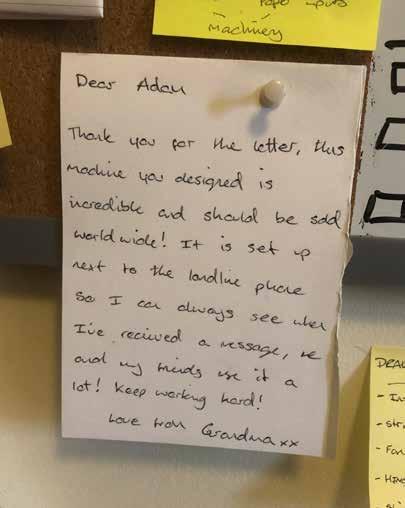 Papo inputs
machinery
Dear Adam
Thank you for the letter, this
machine you designed is
incredible and should be sold
worldwide! It is set up
next to the landline phone
so I can always see when
I've recieved a message, me
and my friends use it a
lot! Keep working hard!
Love from Grandma xx
DRAW
- In
- Str
- Fon
- HING